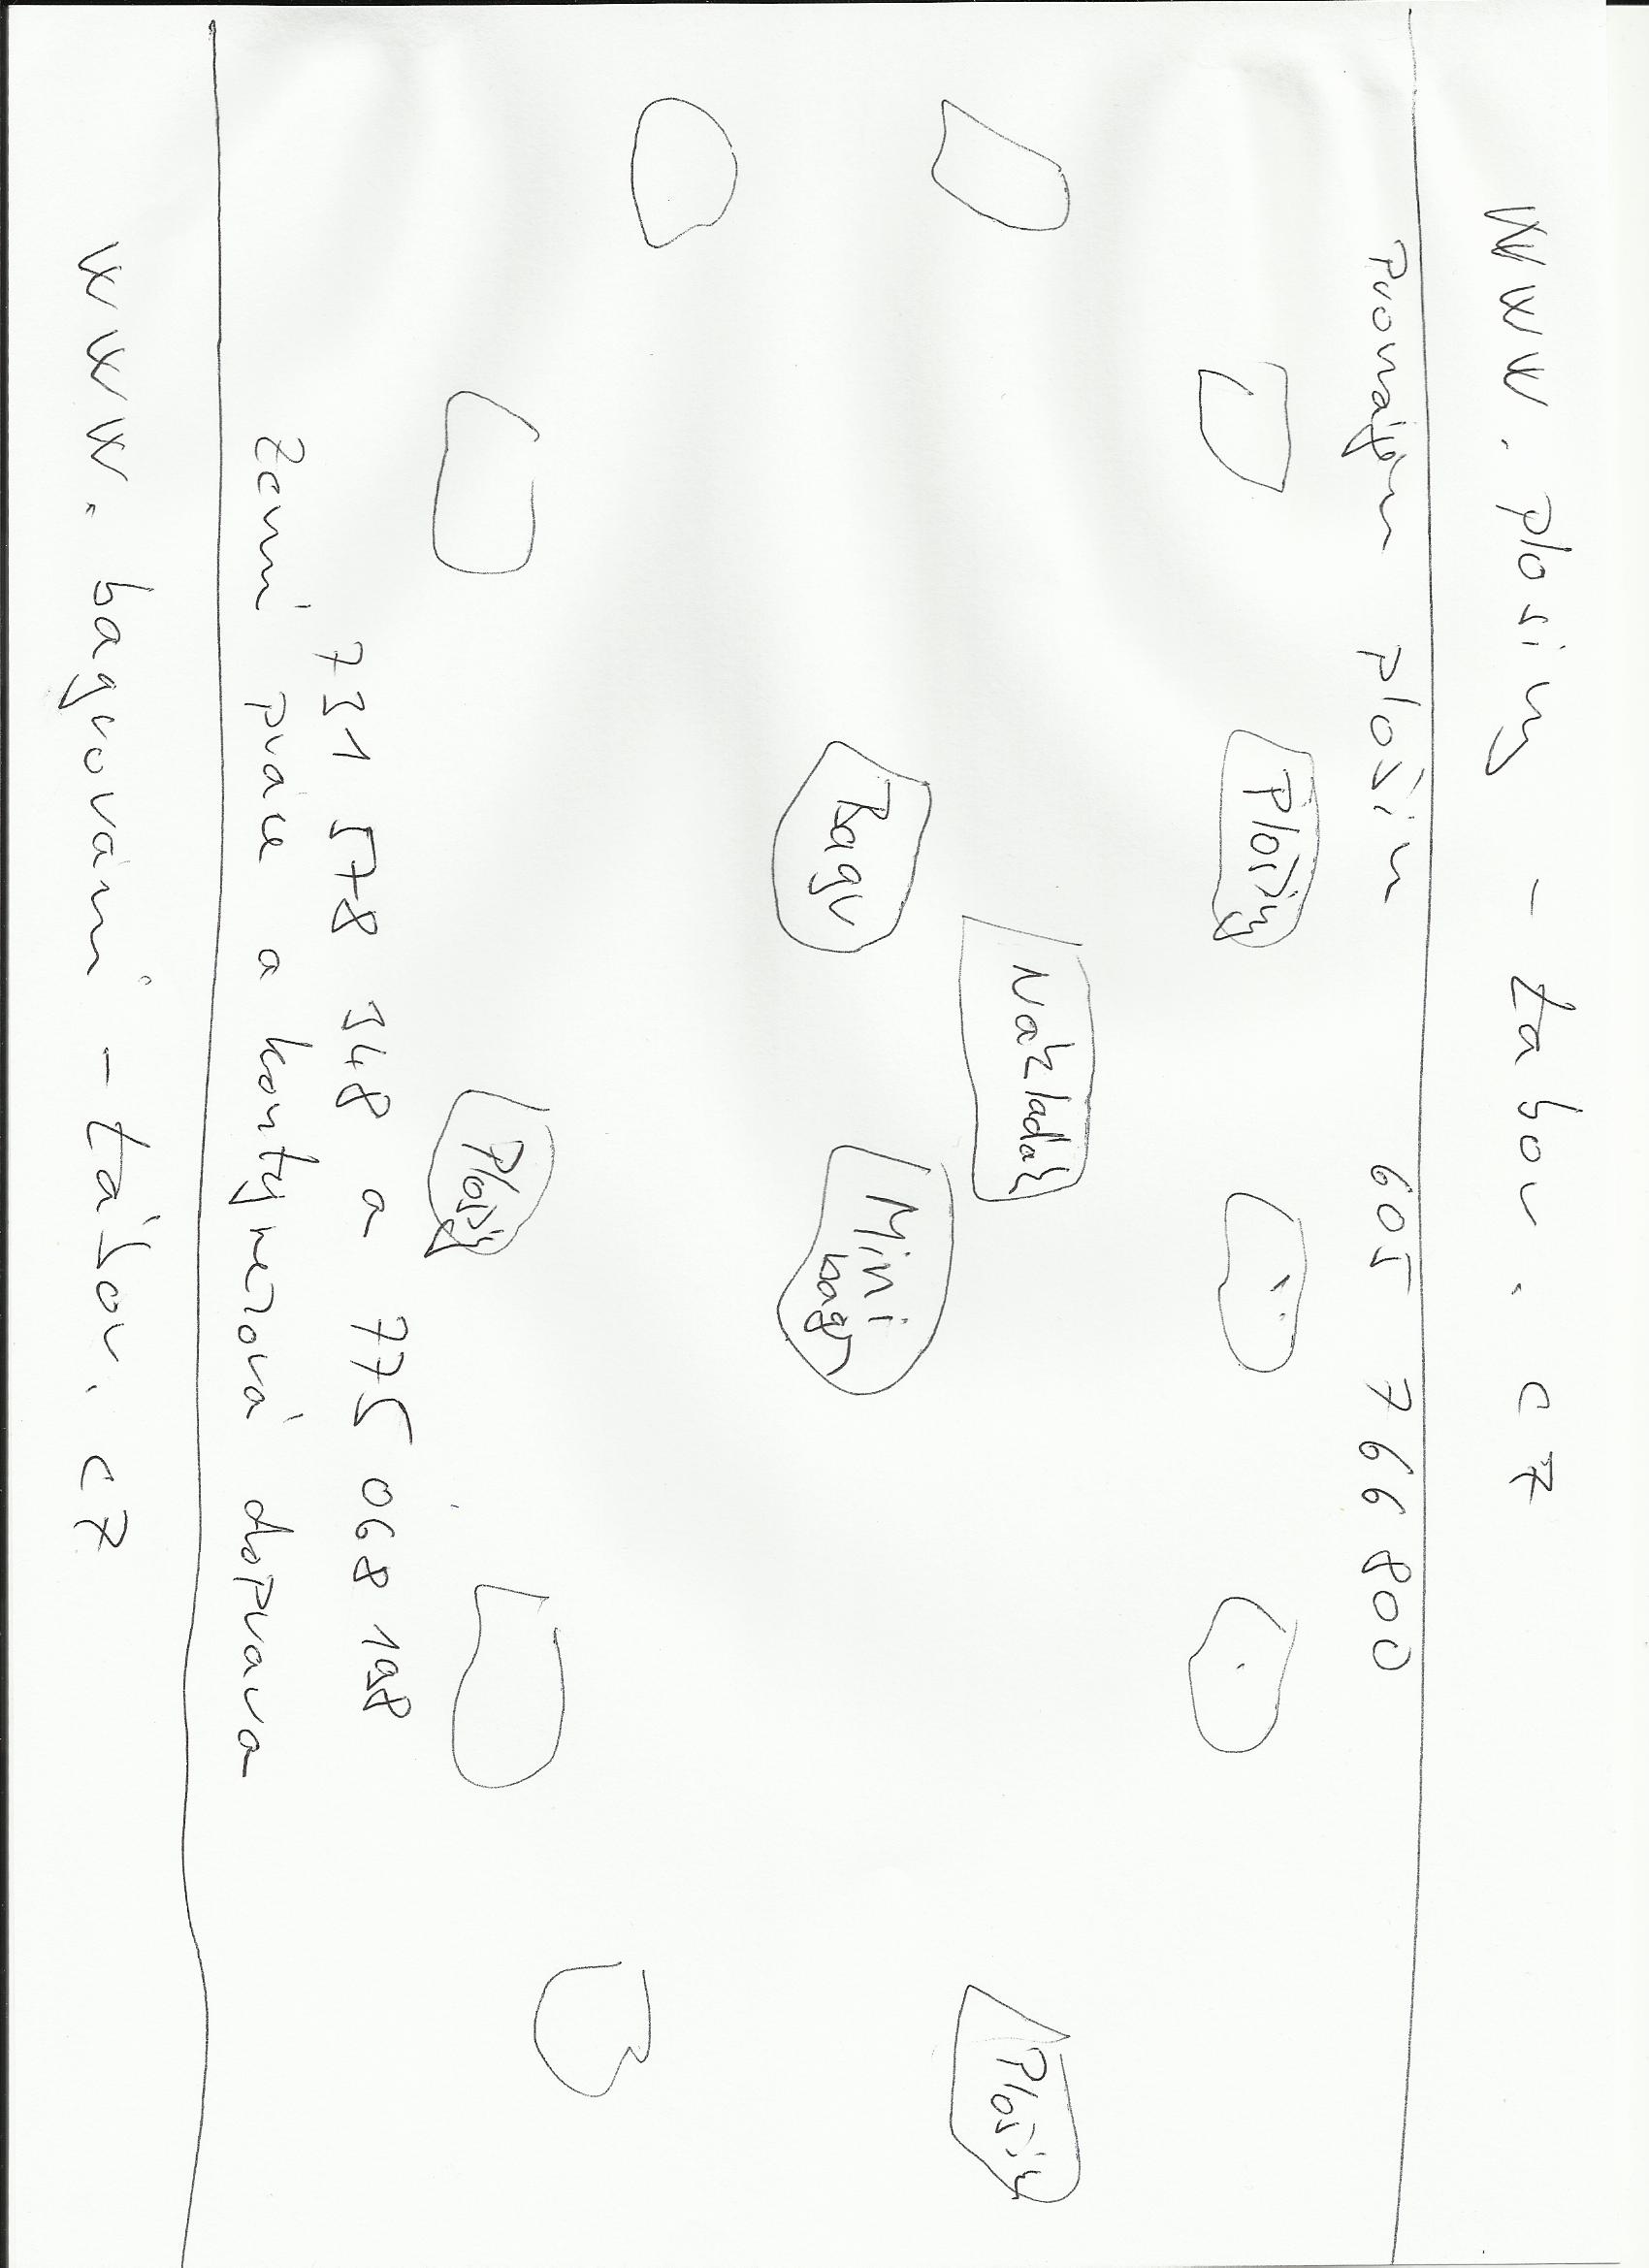 www.plosiny-tabor.cz
Pronájem plošin 605 766 800
Plošiny
Nakladač
Bagr
Mini
bagr
Plošiny
Plošiny
731 578 348 a 775 068 198
Zemní práce a kontejnerová doprava
www.bagrování-tábor.cz